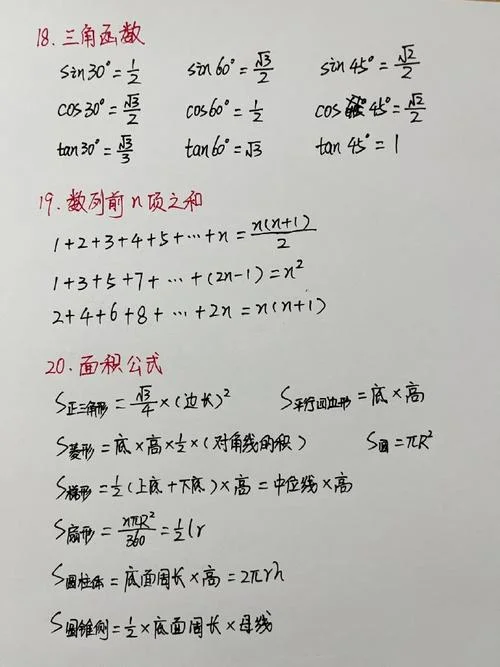 18. 三角函数
sin30°=1/2 sin60°=√3/2 sin45°=√2/2
cos30°=√3/2 cos60°=1/2 cos45°=√2/2
tan30°=√3/3 tan60°=√3 tan45°=1
19. 数列前n项之和
1+2+3+4+5+…+n=n(n+1)/2
1+3+5+7+…+(2n-1)=n²
2+4+6+8+…+2n=n(n+1)
20. 面积公式
S正三角形=√3/4×(边长)² S平行四边形=底×高
S菱形=底×高×1/2×(对角线的积) S圆=πR²
S梯形=1/2(上底+下底)×高=中位线×高
S扇形=nπR²/360=1/2lr
S圆柱体=底面周长×高=2πrh
S圆锥侧=1/2×底面周长×母线